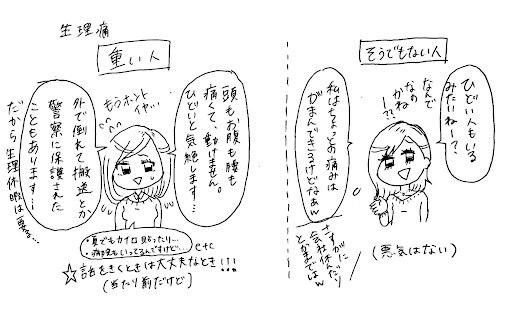 生理痛
重い人
もうホント
イヤ…
頭もお腹も腰も
痛くて、動けません。
ひどいと気絶します…
外で倒れて搬送とか
警察に保護された
こともあります…
だから生理休暇は要る…
・夏でもカイロ貼ったり…
・病院もいってるんですけど…
etc
☆話をきくときは大丈夫なとき!!!
(当たり前だけど)
そうでもない人
ひどい人もいる
みたいねー?
なんで
なの
かねー??
私はちょいお痛みは
がまんできるけどなぁw
さすがに
会社休んだり
とかまではw
(悪気はない)